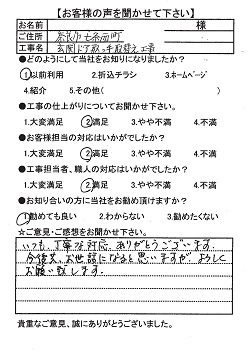 【お客様の声を聞かせて下さい】
お名前 様
ご住所 奈良市七条西町
工事名 玄関ドア取っ手取替え工事
●どのようにして当社をお知りになりましたか？
①以前利用 2.折込チラシ 3.ホームページ
4.紹介 5.その他( )
●工事の仕上がりについてお聞かせ下さい。
1.大変満足 ②満足 3.やや不満 4.不満
●お客様担当の対応はいかがでしたか？
1.大変満足 ②満足 3.やや不満 4.不満
●工事担当者、職人の対応はいかがでしたか？
1.大変満足 ②満足 3.やや不満 4.不満
●お知り合いの方に当社をお勧め頂けますか？
①勧めても良い 2.わからない 3.勧めたくない
☆ご意見・ご感想をお聞かせ下さい。
いつも、丁寧な対応、ありがとうございます。
今後共、お世話になると思いますが、よろしく
お願い致します。
貴重なご意見、誠にありがとうございました。